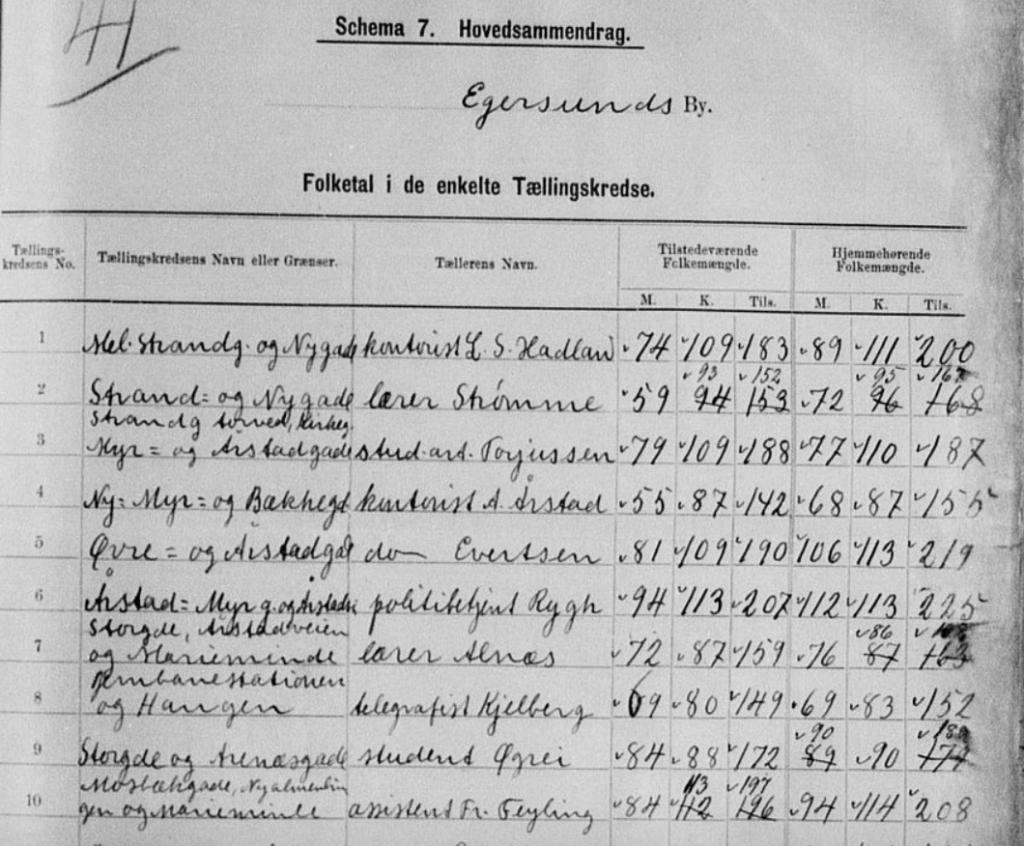 Schema 7. Hovedsammendrag.
Egersunds By.
Folketal i de enkelte Tællingskredse.
Tællings-kredsens No. Tællingskredsens Navn eller Grænser. Tællerens Navn. Tilstedeværende Folkemængde. Hjemmehørende Folkemængde.
M. K. Tils. M. K. Tils.
1 Mel. Strandg. og Nygade kontorist L. S. Hadland 74 109 183 89 111 200
93 152 95 167
2 Strand= og Nygade lærer Strømme 59 94 153 72 96 168
Strandg torved, Kirkeg.
3 Myr= og Årstadgade stud. art. Torjussen 79 109 188 77 110 187
4 Ny= Myr= og Bækhegt kontorist A. Årstad 55 87 142 68 87 155
5 Øvre= og Årstadgd do Evertsen 81 109 190 106 113 219
6 Årstad= Myrg. og politibetjent Rygh 94 113 207 112 113 225
Storgde, Årstadveien 86
7 og Marieminde lærer Alnæs 72 87 159 76 87 163
Jernbanestationen
8 og Haugen telegrafist Kjelberg 69 80 149 69 83 152
90
9 Storgde og Arenæsgade student Øgrei 84 88 172 89 90 179
Mosbækgade, 113 197
10 gen og Marieminde assistent Fr. Feyling 84 112 196 94 114 208